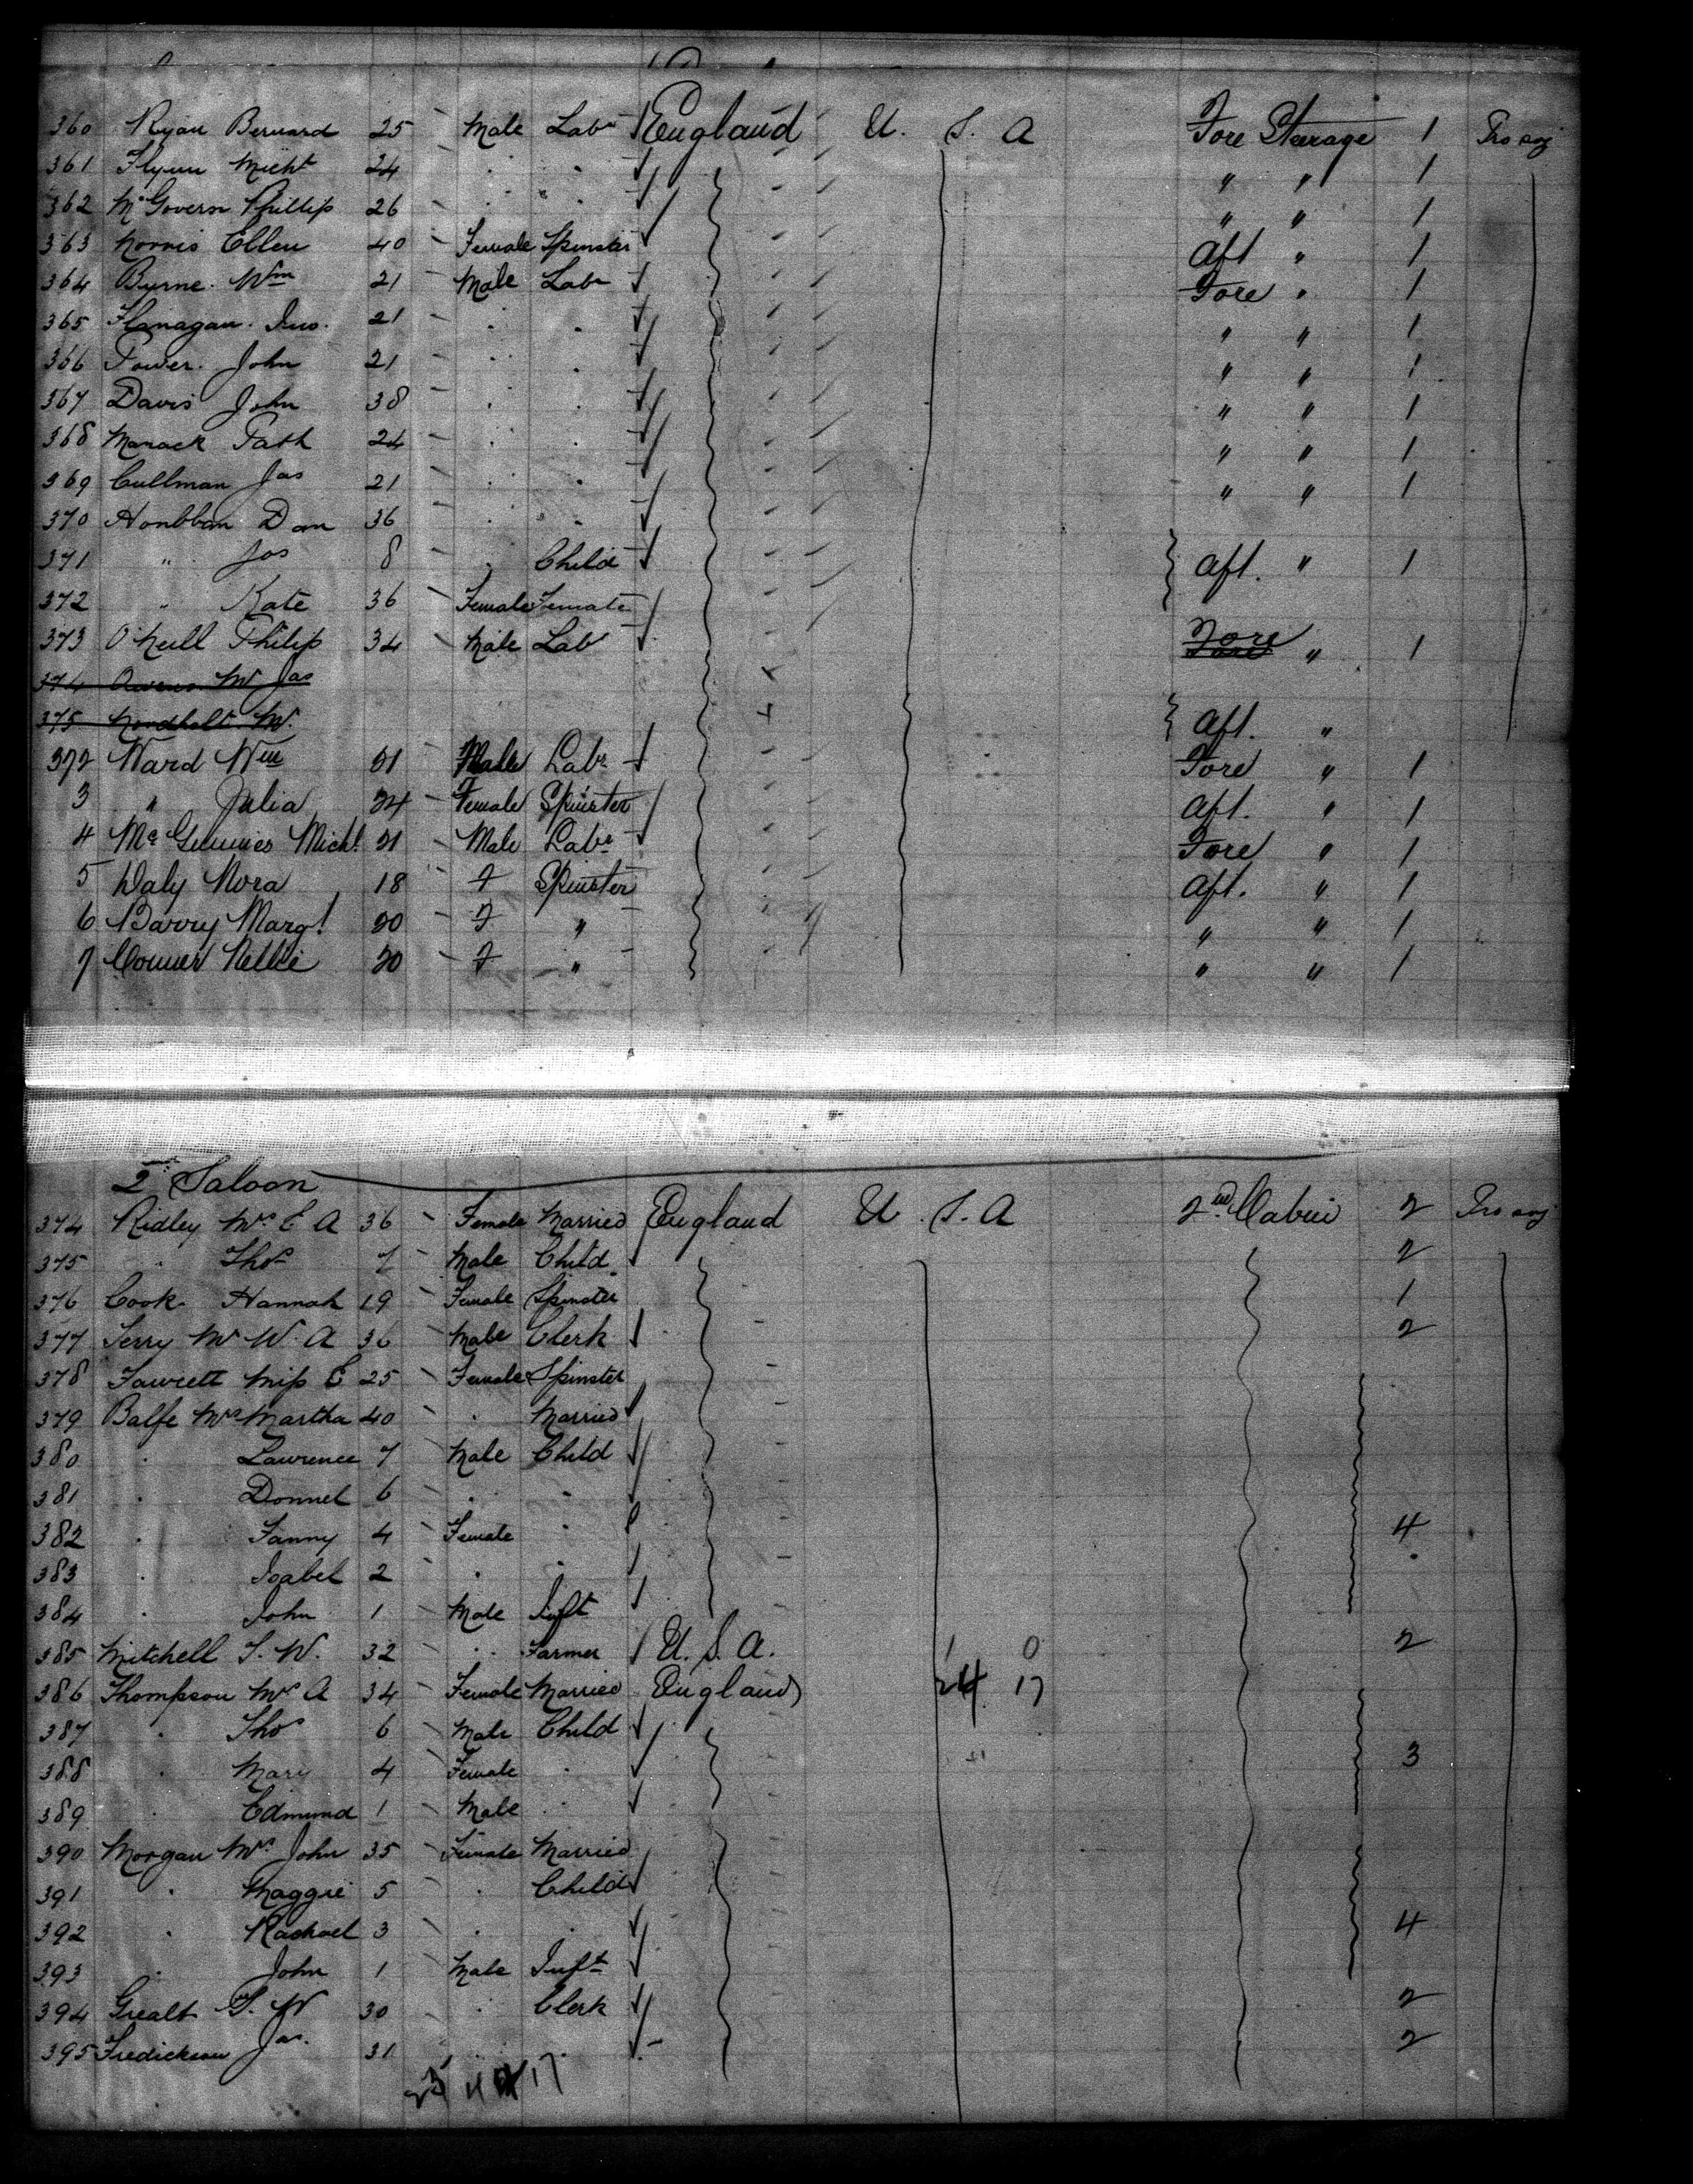 360 Ryan Bernard 25 Male Labr England U. S. A Fore Steerage 1 Pro soj
361 Flynn Michl 24 " " " " 1
362 McGovern Phillip 26 " " " " 1
363 Norris Ellen 40 Female Spinster Aft " 1
364 Byrne Wm 21 Male Labr Fore " 1
365 Flanagan Jno. 21 " " " " 1
366 Power John 21 " " " " 1
367 Davis John 38 " " " " 1
368 Manack Patk 24 " " " " 1
369 Cullman Jas 21 " " " " 1
370 Dan 36 " "
371 " Jos 8 " Child Aft. " 1
372 " Kate 36 Female Female
373 O'Neill Philip 34 Male Lab Fore " 1
374 Owens Mr Jas
375 Nordholt M. Aft. "
372 Ward Wm 21 Male Labr Fore " 1
3 " Julia 24 Female Spinster Aft. " 1
4 Michl. 21 Male Labr Fore " 1
5 Daly Nora 18 F Spinster Aft. " 1
6 Barry Margt 20 F " " " 1
7 Connor Nellie 20 F " " " 1
2nd Saloon
374 Ridley Mrs E A 36 Female Married England U. S. A 2nd Cabin 2 Pro soj
375 " Thos 7 Male Child 2
376 Cook Hannah 19 Female Spinster 1
377 Terry Mr W. A 36 Male Clerk 2
378 Fawcett Miss E 25 Female Spinster
379 Balfe Mrs Martha 40 " Married
380 " Lawrence 7 Male Child
381 " Donnel 6 " "
382 " Fanny 4 Female " 4
383 " Isabel 2 " "
384 " John 1 Male Inft
385 Mitchell S. W. 32 " Farmer U. S. A. 1 0 2
386 Thompson Mrs A 34 Female Married England 24 17
387 " Thos 6 Male Child
388 " Mary 4 Female " 3
389 " Edmund 1 Male "
390 Morgan Mrs John 35 Female Married
391 " Maggie 5 " Child
392 " Rachael 3 " " 4
393 " John 1 Male Inft
394 Grealt W 30 " Clerk 2
395 Fredickson Jas. 31 " " 2